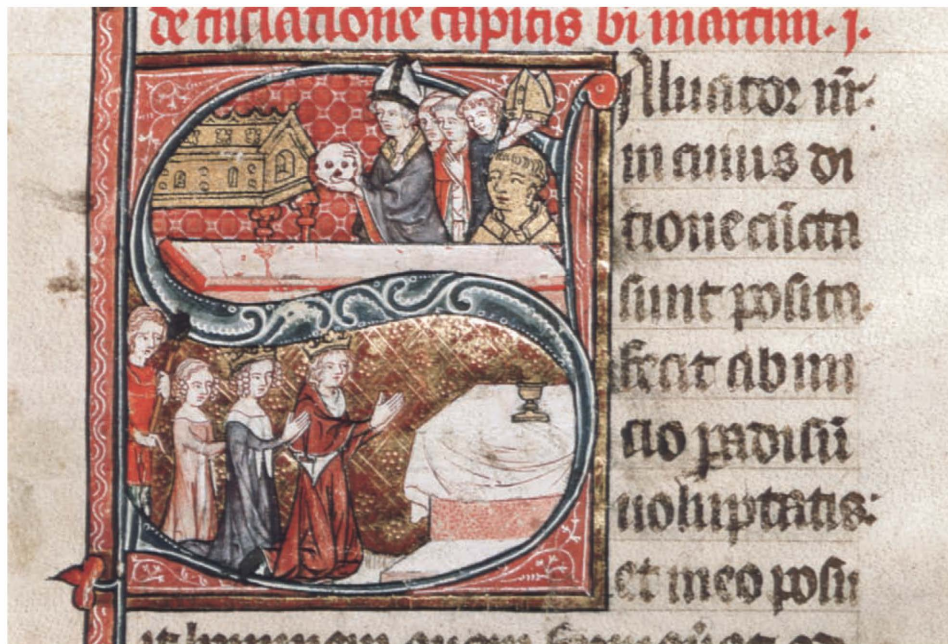 de trſlatione capitis bi martini. j.
Saluator nr̄.
in cuius di
tione cūcta
sunt posita.
fecit ab ini
cio padisū
uoluptatis:
et in eo posu
it hominem quem